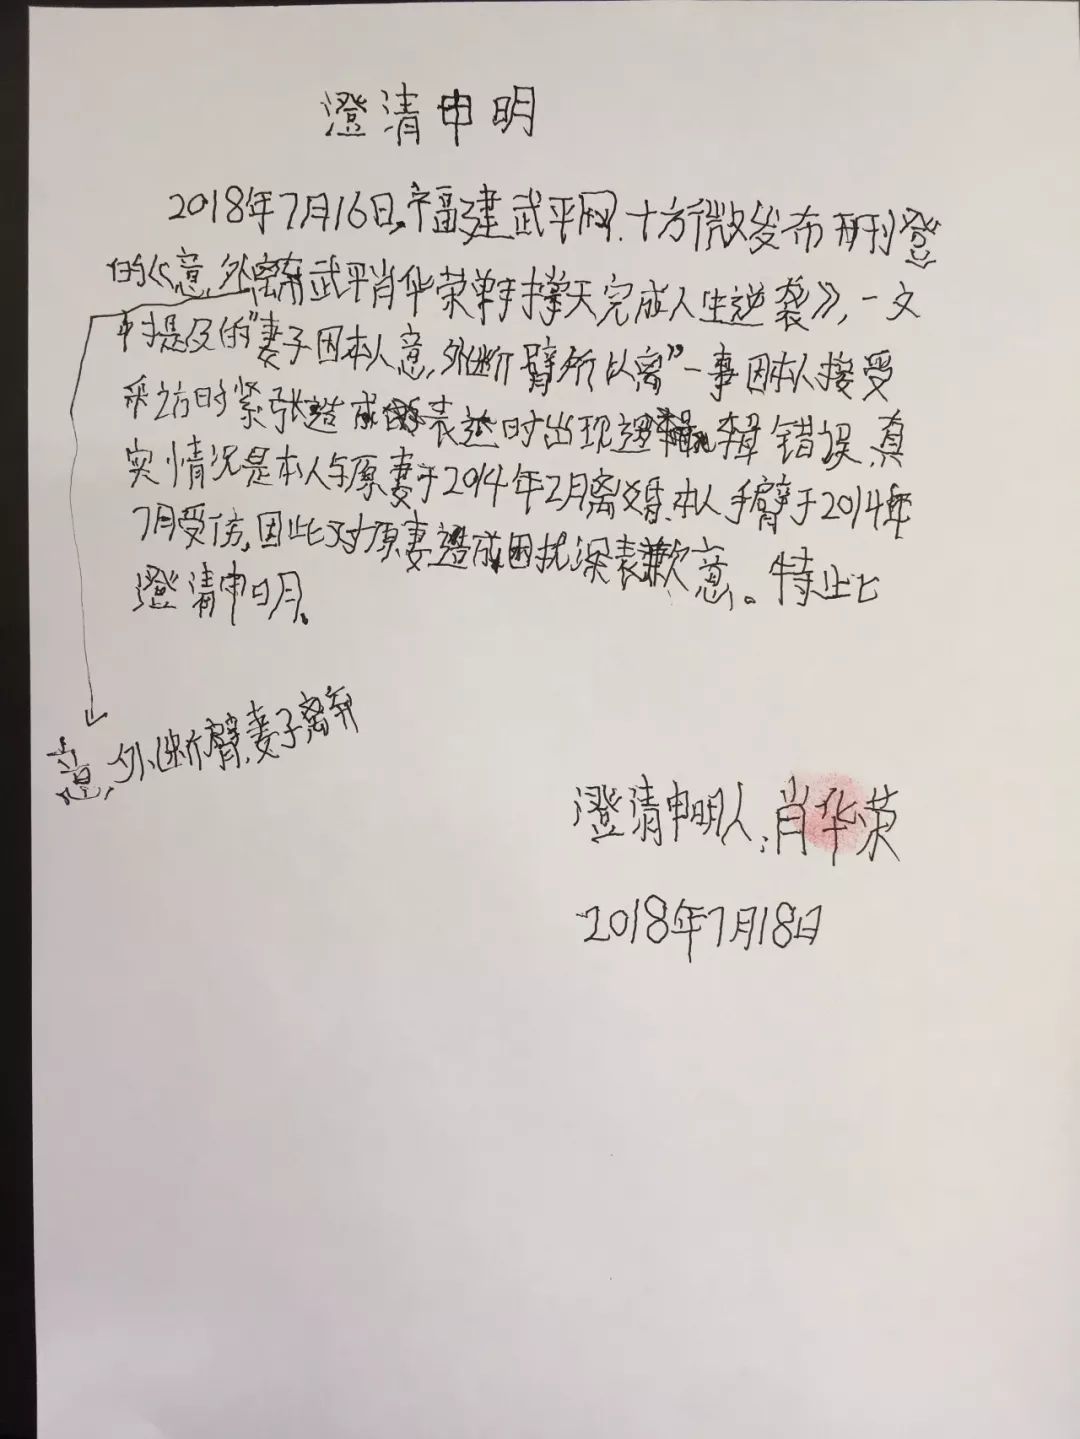 澄清申明
2018年7月16日,福建武平网.十方微发布所刊登
的《意外离弃武平肖华荣单手撑天完成人生逆袭》,一文
中提及的"妻子因本人意外断臂所以离"一事因本人接受
采访时紧张造成表达时出现逻辑错误,真
实情况是本人与原妻于2014年2月离婚.本人手臂于2014年
7月受伤,因此对原妻造成困扰深表歉意。特此
澄清申明.
意外断臂,妻子离弃
澄清申明人:肖华荣
2018年7月18日